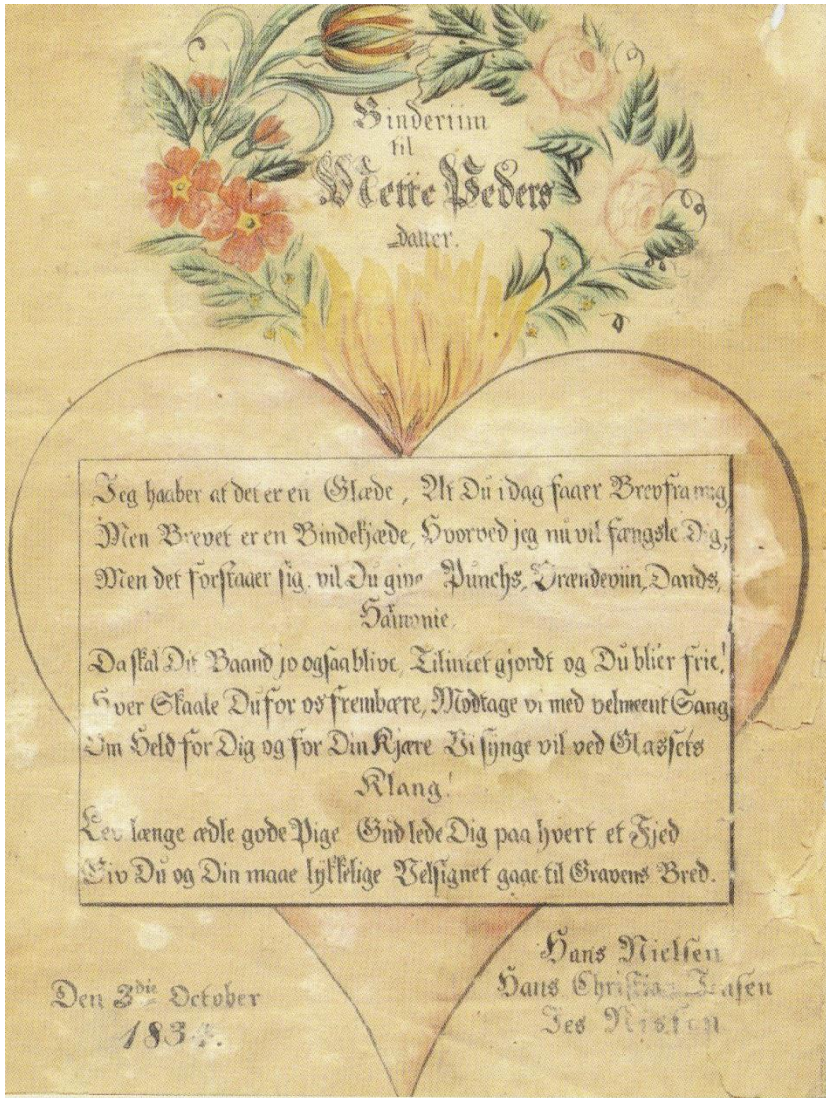 Binderiim
til
Mette Peders
datter.
Jeg haaber at det er en Glæde, At Du idag faaer Brev fra mig,
Men Brevet er en Bindekjæde, Hvorved jeg nu vil fængsle Dig,
Men det forstaaer sig, vil Du give Punchs, Brændeviin, Dands,
Harmonie.
Da skal Dit Baand jo ogsaa blive, Tilintetgjordt og Du blier frie!
Hver Skaale Du for os frembære, Modtage vi med velmeent Sang
Om Held for Dig og for Din Kjære Vi synge vil ved Glassets
Klang!
Lev længe ædle gode Pige Gud lede Dig paa hvert et Fjed
Giv Du og Din maae lykkelige Velsignet gaae til Gravens Bred.
Den 3die October
Hans Nielsen
Hans Christian
Jes Nissen